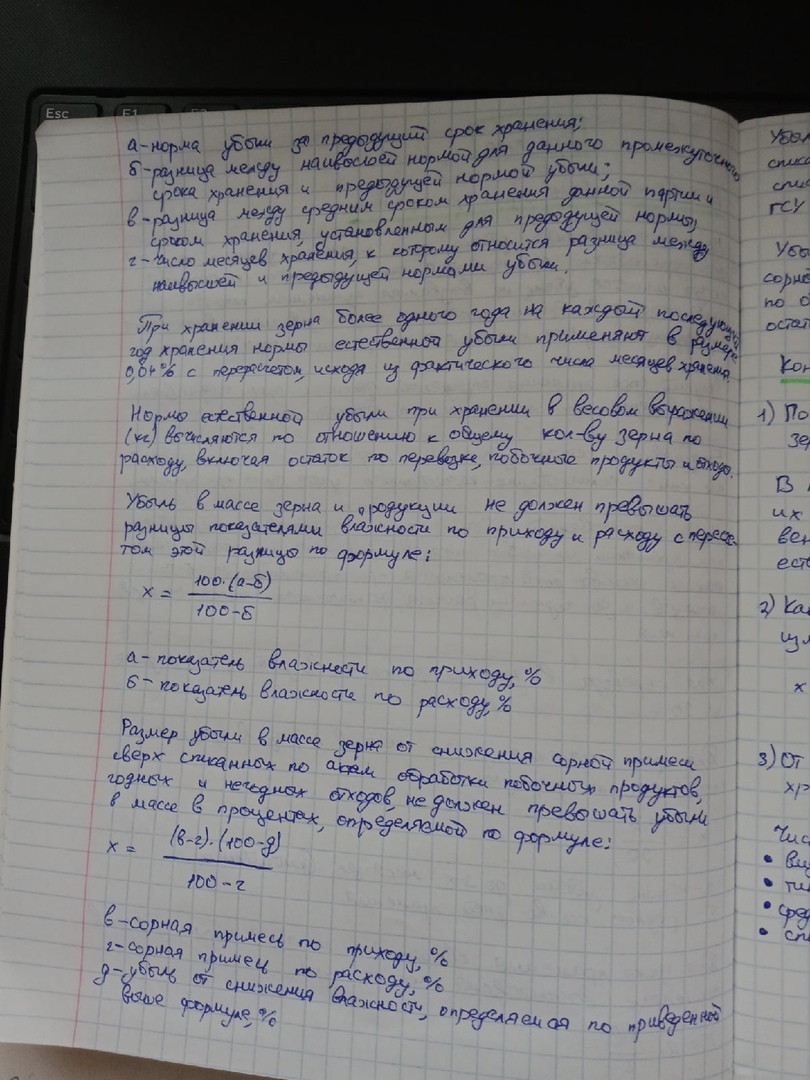 Esc
F1
а-норма убыли за предыдущий срок хранения;
б-разница между наивысшей нормой для данного промежуточного
срока хранения и предыдущей нормой убыли;
в-разница между средним сроком хранения данной партии и
сроком хранения, установленным для предыдущей нормы;
г-число месяцев хранения, к которому относится разница между
наивысшей и предыдущей нормами убыли.
При хранении зерна более одного года на каждый последующий
год хранения нормы естественной убыли применяют в размере
0,04% с перерасчетом, исходя из фактического числа месяцев хранения.
Нормы естественной убыли при хранении в весовом выражении
(кг) вычисляются по отношению к общему кол-ву зерна по
расходу, включая остаток по перевеске, побочные продукты и отходы.
Убыль в массе зерна и продукции не должен превышать
разницы показателями влажности по приходу и расходу с пересче-
том этой разницы по формуле:
х = 100·(а-б)
100-б
а - показатель влажности по приходу, %
б - показатель влажности по расходу, %
Размер убыли в массе зерна от снижения сорной примеси
сверх списанных по актам обработки побочных продуктов,
годных и негодных отходов, не должен превышать убыли
в массе в процентах, определяемой по формуле:
х = (в-г)·(100-д)
100-г
в-сорная примесь по приходу, %
г-сорная примесь по расходу, %
д-убыль от снижения влажности, определяемая по приведенной
выше формуле, %
Убыл
списа
спис
ГСУ
Убы
сорно
по о
остат
Кон
1) По
зе
В
их
вен
ест
2) Ка
изм
х
3) От
хр
Чис
• ви
• ти
• сред
• сп